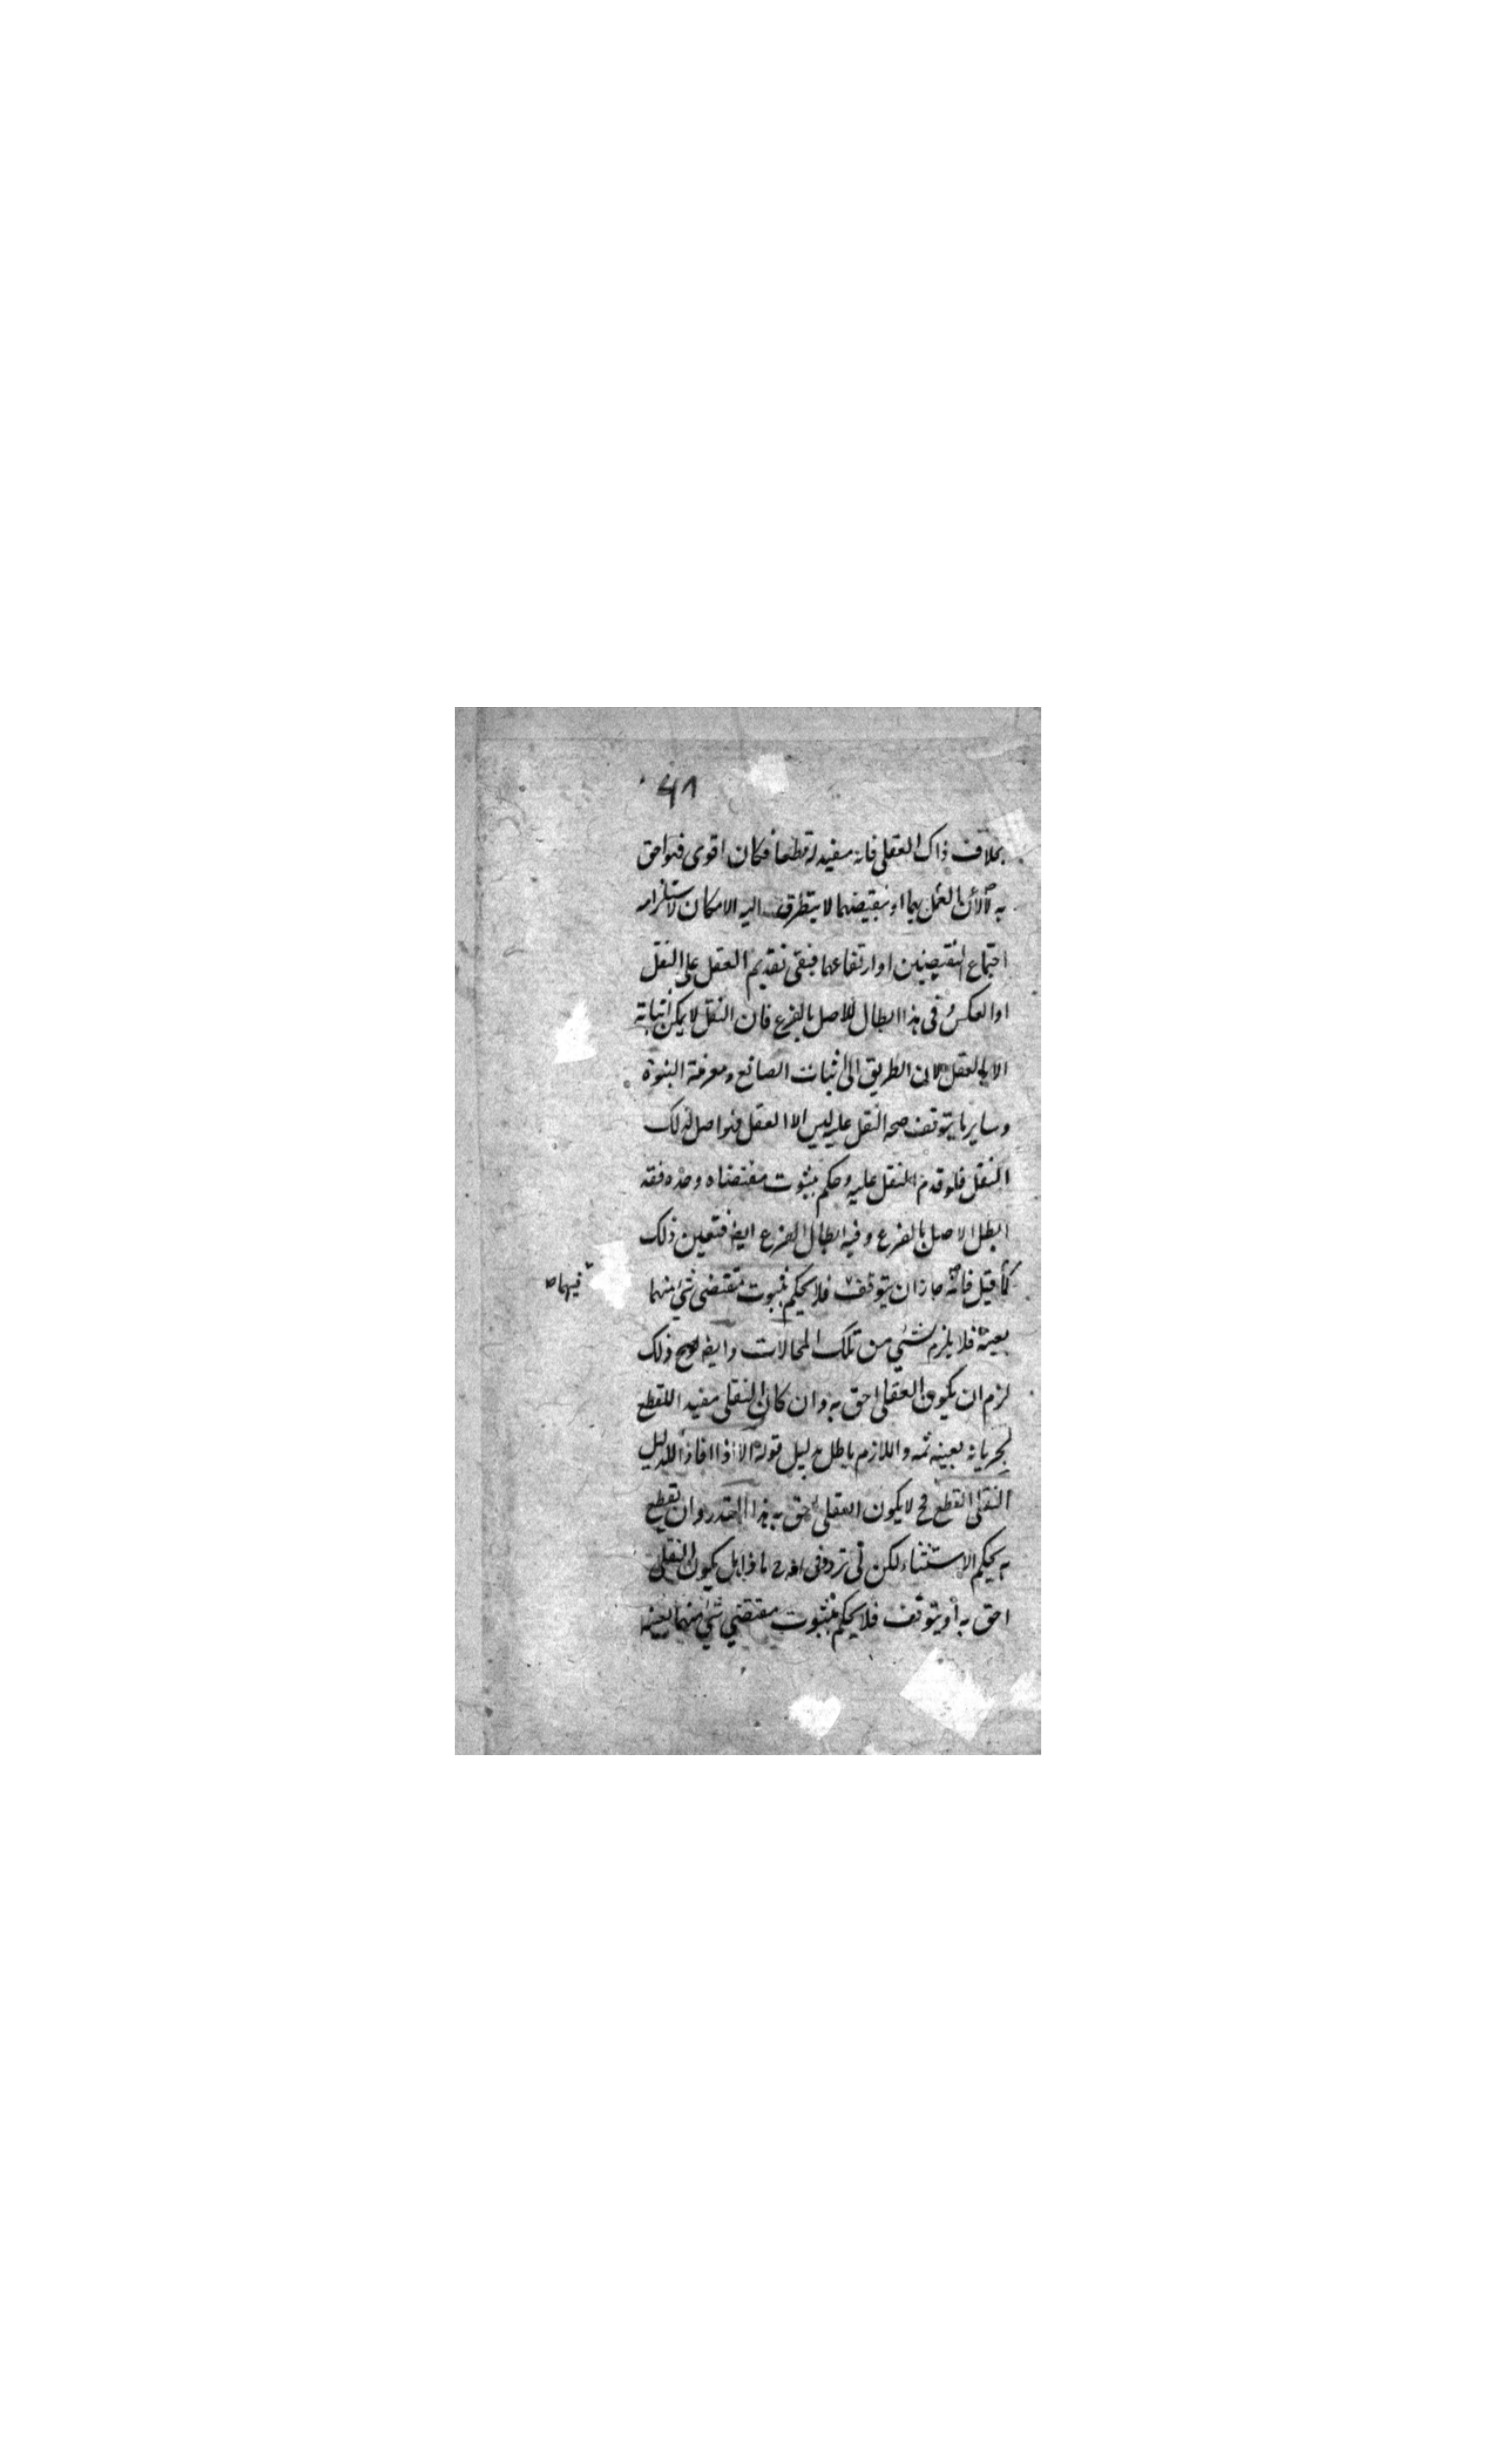 ٤٨
بخلاف ذاك العقلى فانه مفيد له قطعا فكان اقوى فهو احق
به لا لان العمل بهما او بنقيضهما لا يتطرق اليه الامكان لاستلزامه
اجتماع النقيضين او ارتفاعهما فبقى تقديم العقل على النقل
او العكس وفى هذا ابطال للاصل بالفرع فان النقل لا يمكن اثباته
الا بالعقل لان الطريق الى اثبات الصانع ومعرفة النبوة
وساير ما يتوقف صحه النقل عليه ليس الا العقل فهو اصل لذلك
النقل فلو قدم النقل عليه وحكم بثبوت مقتضاه وحده فقد
ابطل الاصل بالفرع وفيه ابطال الفرع ايض فتعين ذلك
كما قيل فانه جاز ان يتوقف فلا يحكم بثبوت مقتضى شئ منهما
فيهما صح
بعينه فلا يلزم شئ من تلك المحالات وايض لو صح ذلك
لزم ان يكون العقلى احق به وان كان النقلى مفيدا للقطع
لجريانه بعينه ثمه واللازم باطل بدليل قوله الا اذا افاد الدليل
النقلى القطع فح لا يكون العقلى احق به هذا القدر وان يقطع
به بحكم الاستثناء لكن فى تردد ماذا بل يكون النقلى
احق به او يتوقف فلا يحكم بثبوت مقتضى شئ منهما بعينه